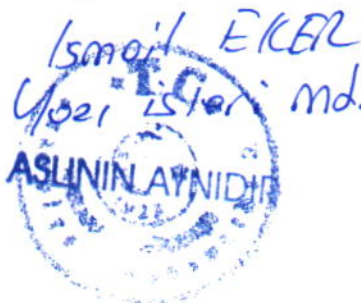 Ismail EKER
Yazı işleri md.
T.C.
ASLININ AYNIDIR